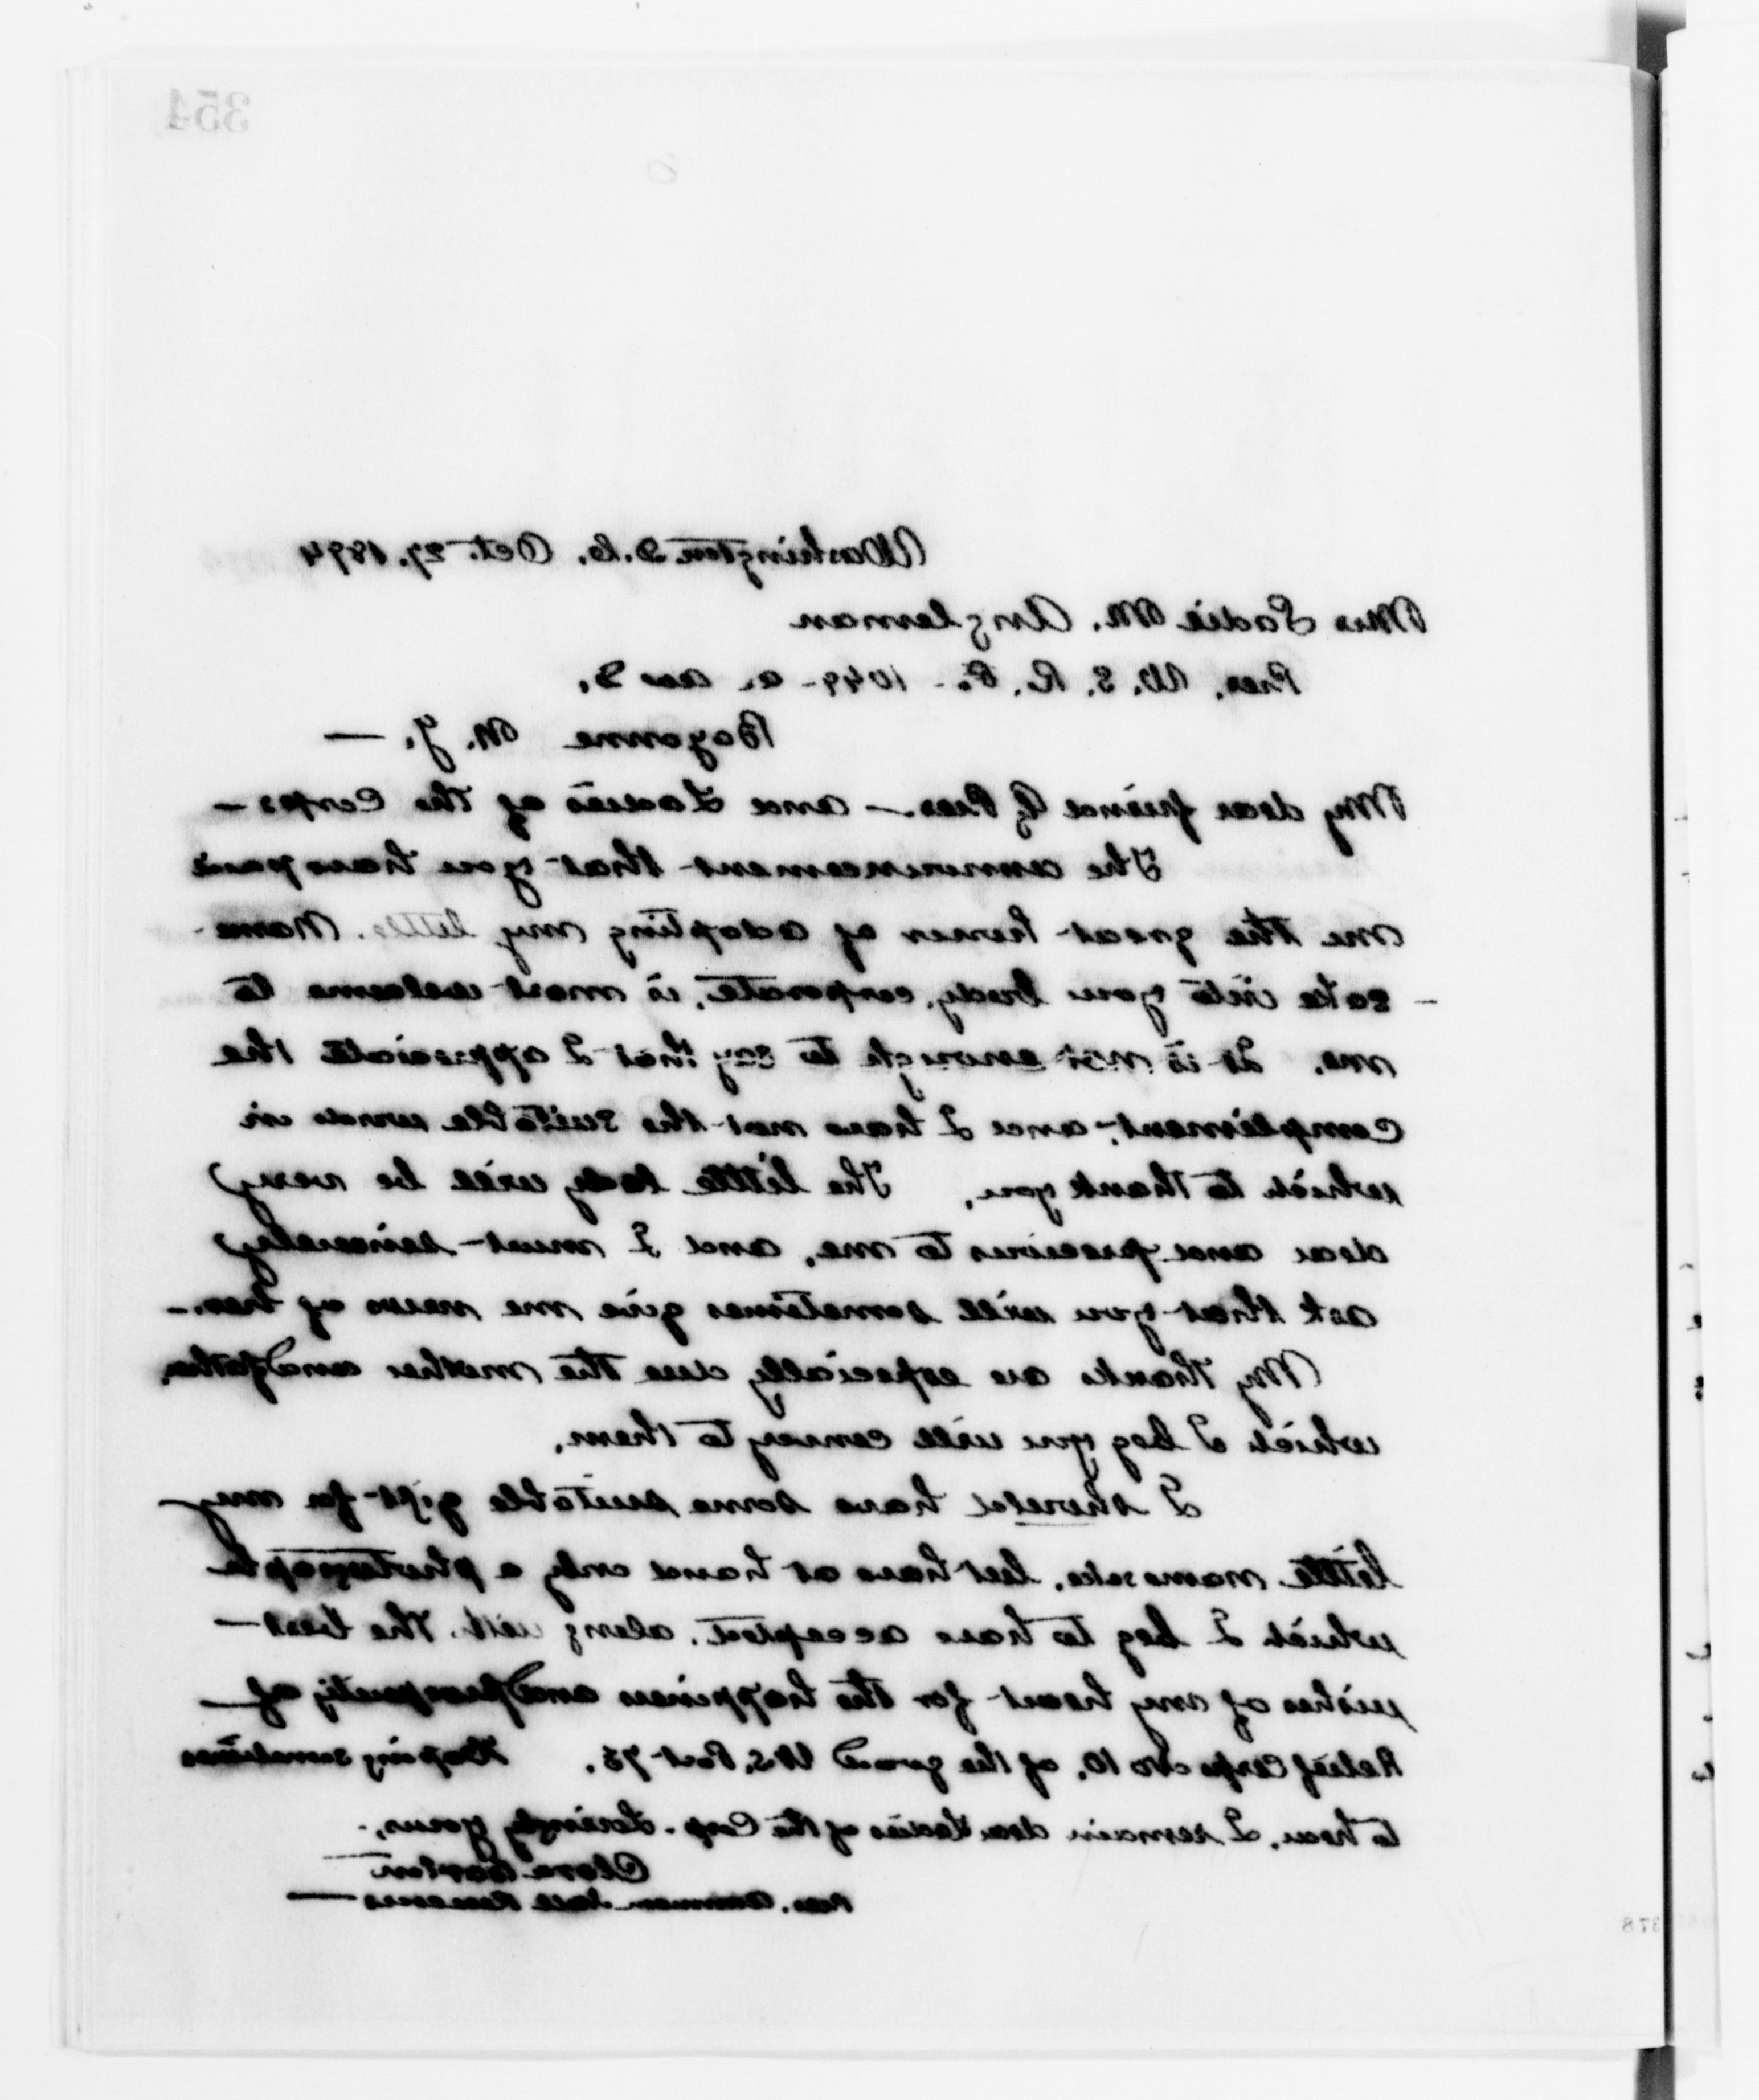 354
Washington D.C. Oct. 27, 1894
Mrs Sadie M. Angleman
Pres. W. S. R. C. - 1049 - a. ave D.
Bayonne N. J. —
My dear friend & Pres. — and Ladies of the Corps —
The announcement that you have paid
me the great honor of adopting my little. Name
- sake into your body, corporate, is most welcome to
me. It is not enough to say that I appreciate the
compliment, and I have not the suitable words in
which to thank you. The little lady will be very
dear and precious to me, and I must sincerely
ask that you will sometimes give me news of her. -
My thanks are especially due the mother and father,
which I beg you will convey to them.
I should have some suitable gift for my
little namesake, but have at hand only a photograph
which I beg to have accepted, along with the best —
wishes of my heart for the happiness and prosperity of
Relief Corps No 10, of the good W.S. Post 73. Hoping sometimes
to hear, I remain dear Ladies of the Corp. Lovingly yours,
Clara Barton
Pres. American
378